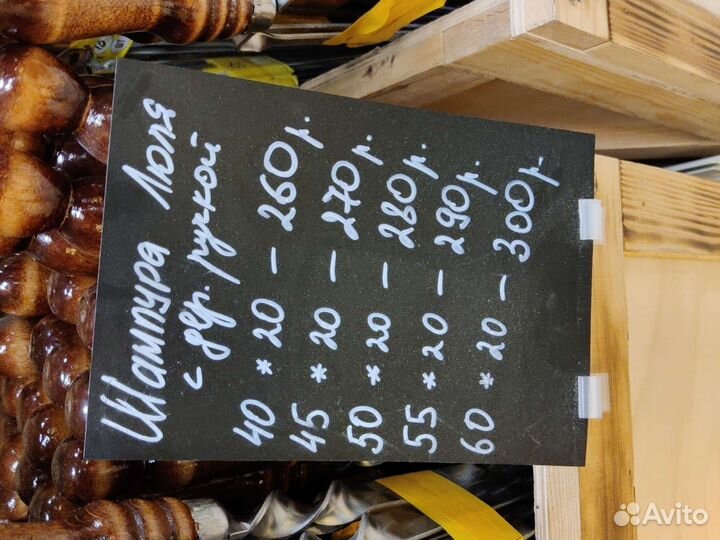 Шампура Люля
с дер. ручкой
40 * 20 - 260 р.
45 * 20 - 270 р.
50 * 20 - 280 р.
55 * 20 - 290 р.
60 * 20 - 300 р-
Avito